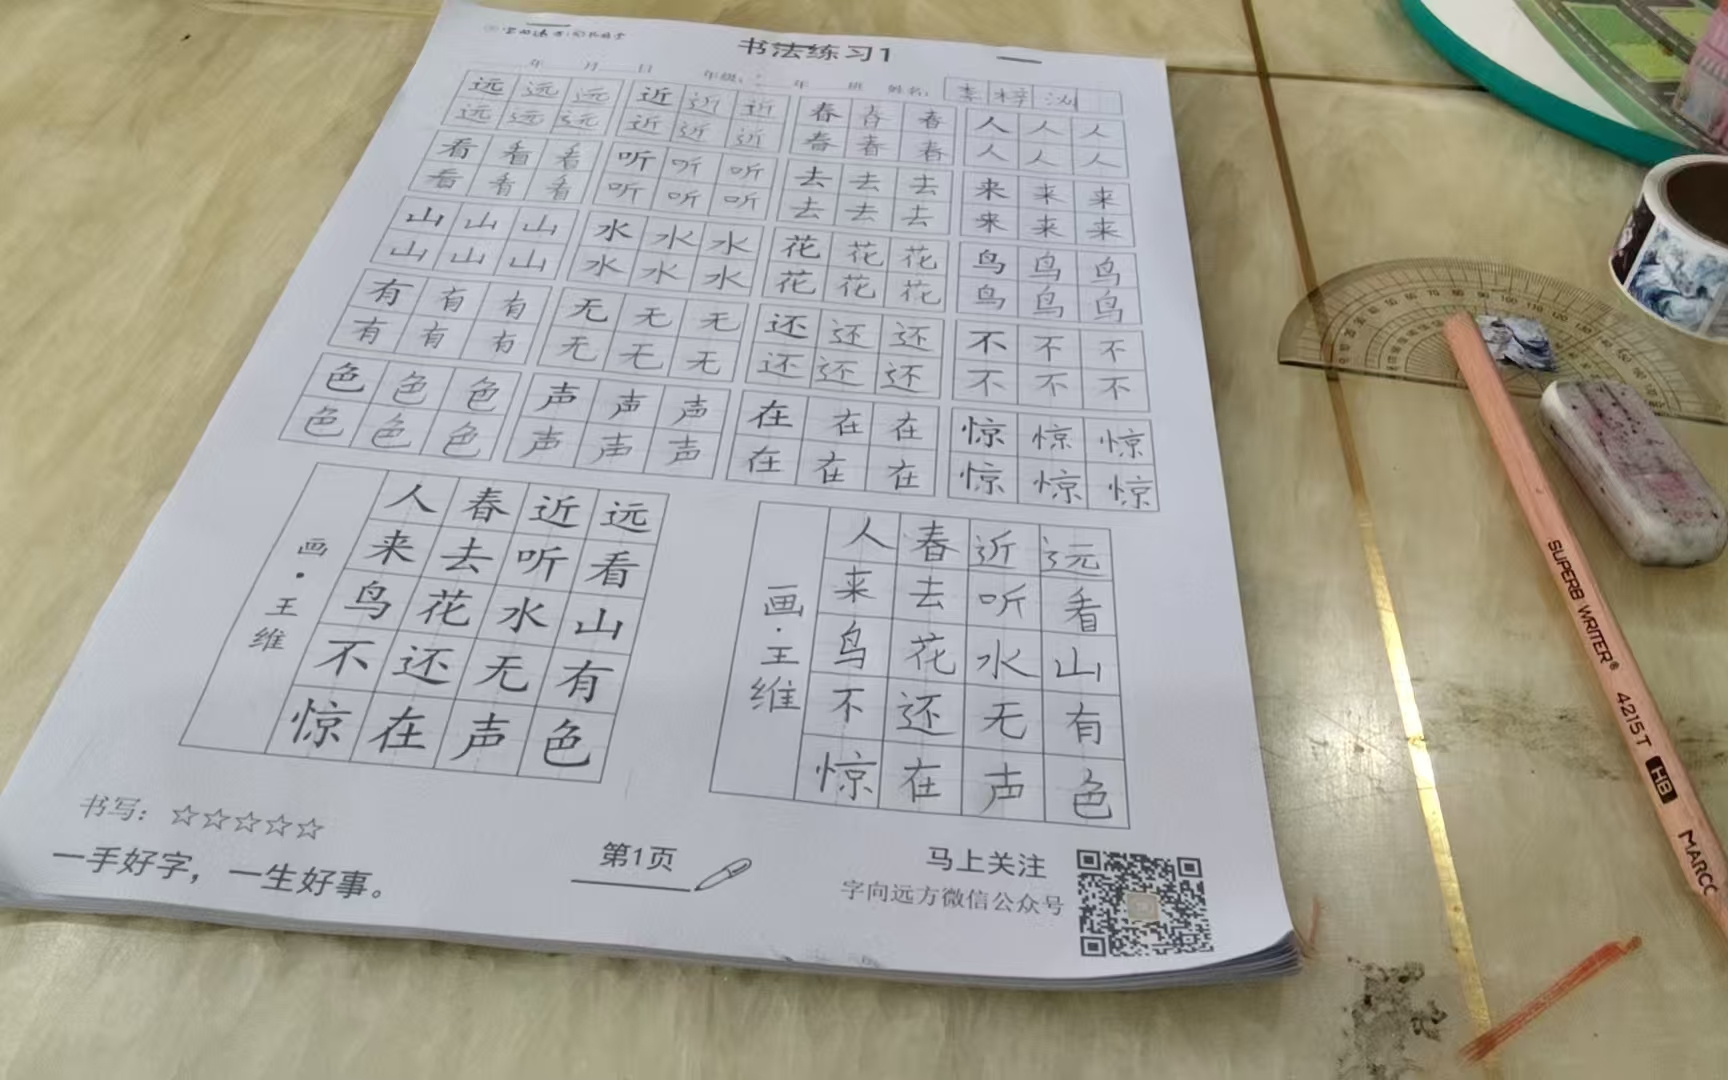 书法练习1
年 月 日 年级: 年 班 姓名: 李梓
远远远 近近近 春春春 人人人
远远远 近近近 春春春 人人人
看看看 听听听 去去去 来来来
看看看 听听听 去去去 来来来
山山山 水水水 花花花 鸟鸟鸟
山山山 水水水 花花花 鸟鸟鸟
有有有 无无无 还还还 不不不
有有有 无无无 还还还 不不不
色色色 声声声 在在在 惊惊惊
色色色 声声声 在在在 惊惊惊
画·王维
人春近远
来去听看
鸟花水山
不还无有
惊在声色
画·王维
人春近远
来去听看
鸟花水山
不还无有
惊在声色
书写: ☆☆☆☆☆
一手好字，一生好事。
第1页
马上关注
字向远方微信公众号
SUPERB WRITER® 4215T HB MARCO